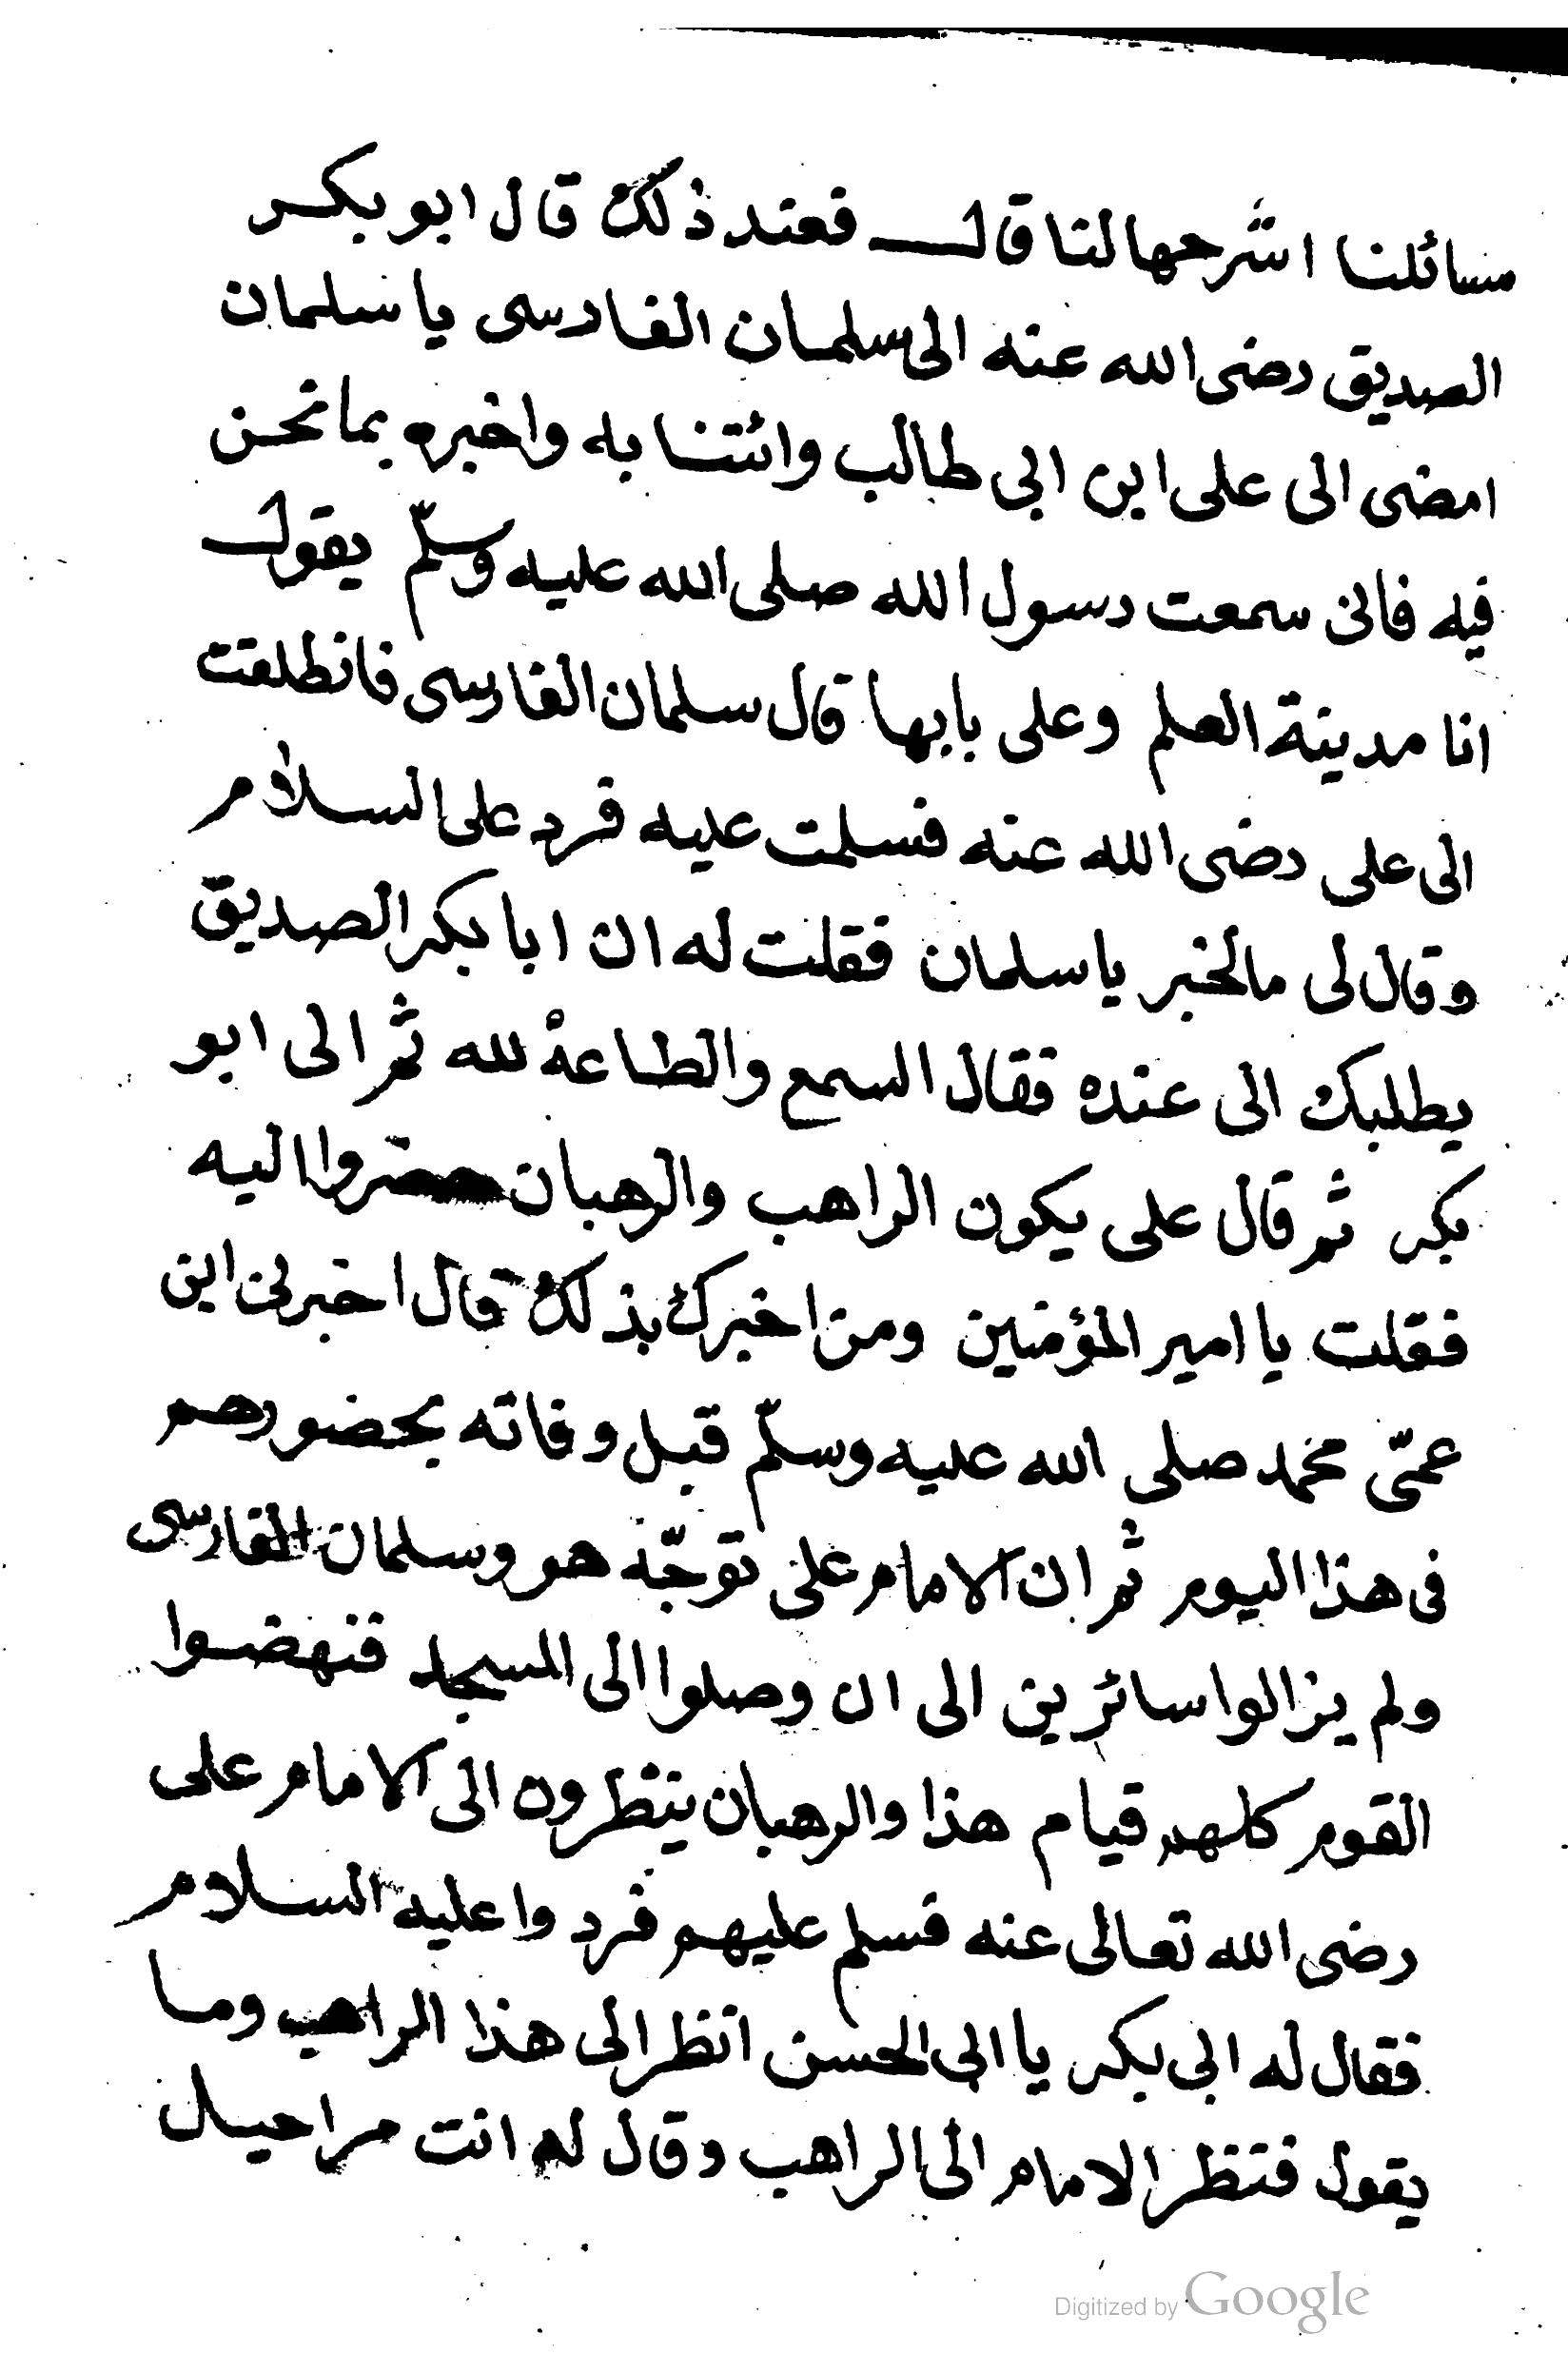 مسائلنا اشرحها لنا قال فعند ذلك قال ابو بكر
الصديق رضى الله عنه الى سلمان الفارسى يا سلمان
امضى الى على ابن ابى طالب وائتنا به واخبره بما نحن
فيه فانى سمعت رسول الله صلى الله عليه وسلّم يقول
انا مدينة العلم وعلى بابها قال سلمان الفارسى فانطلقت
الى على رضى الله عنه فسلمت عليه فرد على السلام
وقال لى مالخبر يا سلمان فقلت له ان ابا بكر الصديق
يطلبك الى عنده فقال السمع والطاعة لله ثم الى ابو
بكر ثم قال على يكون الراهب والرهبان حضروا اليه
فقلت يا امير المؤمنين ومن اخبرك بذلك قال اخبرنى ابن
عمّى محمد صلى الله عليه وسلّم قبل وفاته بحضورهم
فى هذا اليوم ثم ان الامام على توجّه هو وسلمان الفارسى
ولم يزالوا سائرين الى ان وصلوا الى المسجد فنهضوا
القوم كلهم قيام هذا والرهبان ينظرون الى الامام على
رضى الله تعالى عنه فسلم عليهم فردوا عليه السلام
فقال له ابى بكر يا ابى الحسن انظر الى هذا الراهب وما
يقول فنظر الامام الى الراهب وقال له انت مراحيل
Digitized by Google